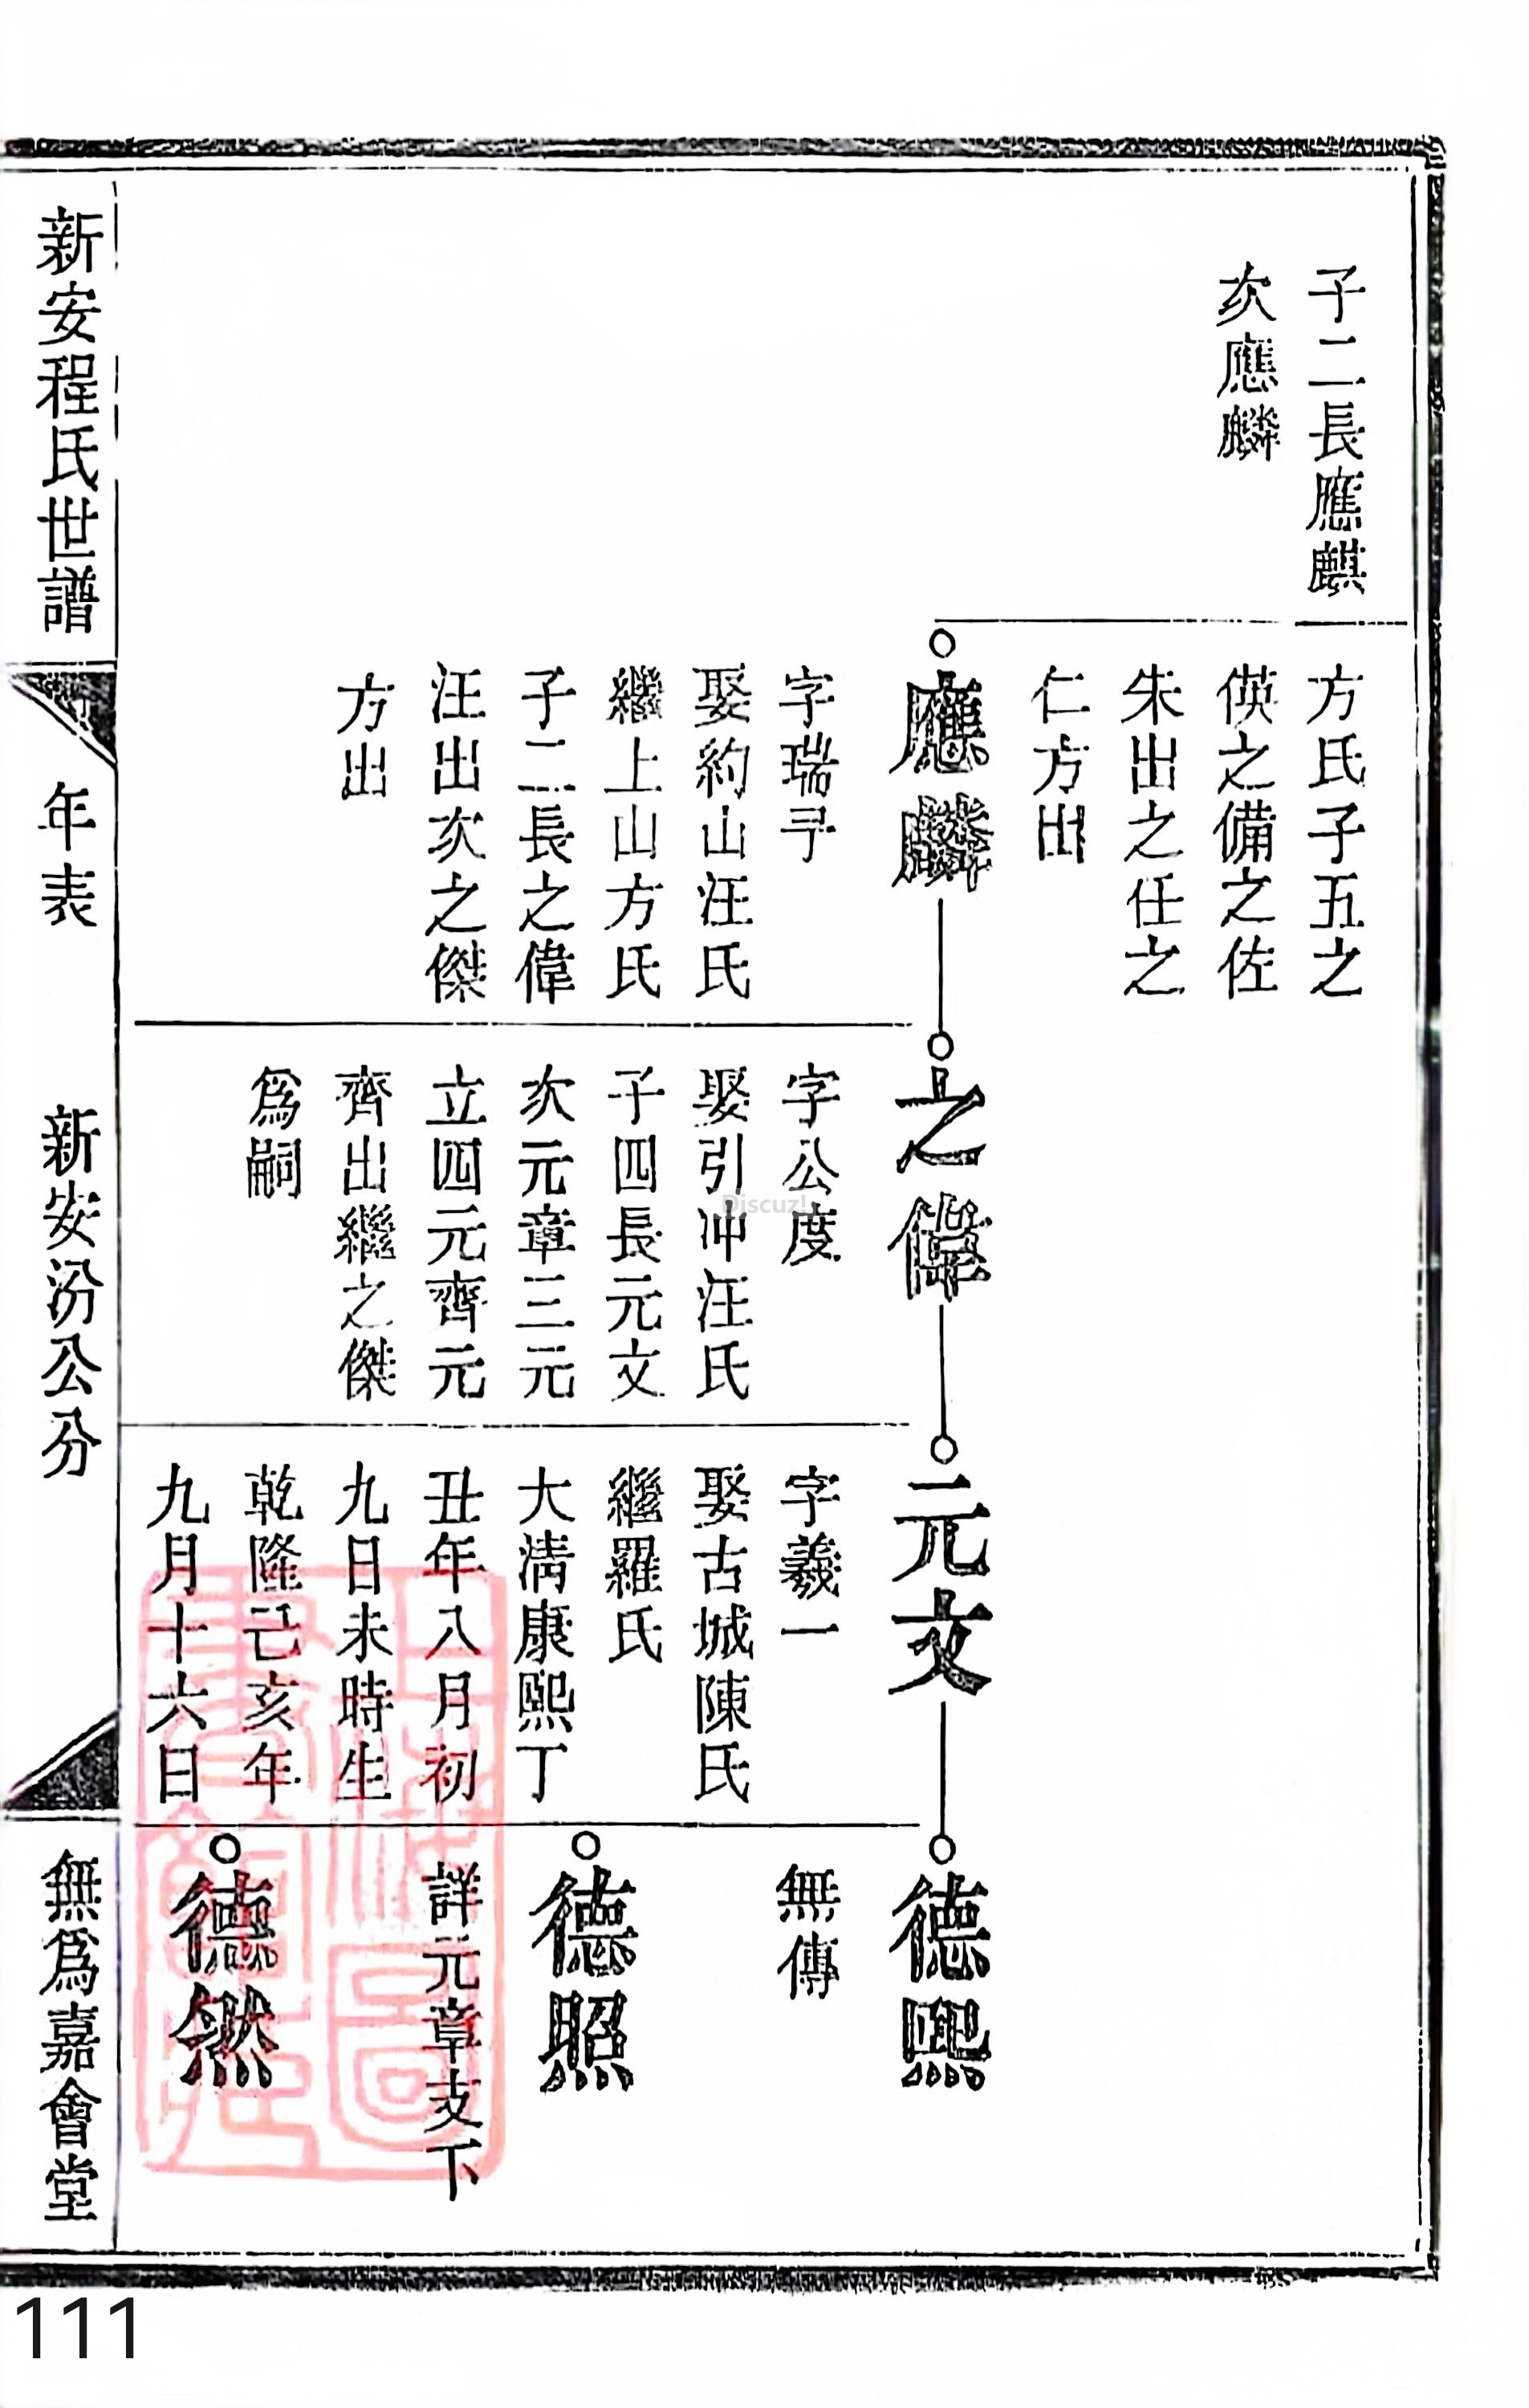 子二長應麒
次應麟
方氏子五之
偀之備之佐
朱出之任之
仁方出
應麟
字瑞寻
娶約山汪氏
繼上山方氏
子二長之偉
汪出次之傑
方出
之偉
字公度
娶引冲汪氏
子四長元文
次元章三元
立四元齊元
齊出繼之傑
爲嗣
元文
字羲一
娶古城陳氏
繼羅氏
大淸康熙丁
丑年八月初
九日未時生
乾隆己亥年
九月十六日
德熙
無傳
德照
詳元章支下
德然
新安程氏世譜
年表
新安汾公分
無爲嘉會堂
Discuz!
111